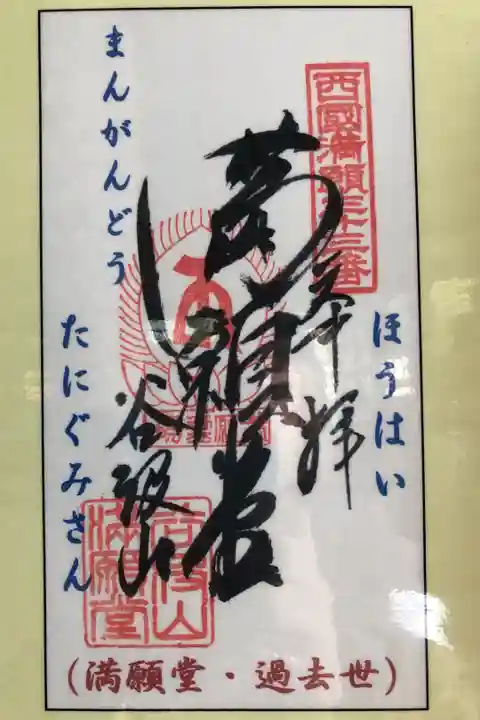 西國満願三十三番
奉拝
ほうはい
満願堂
まんがんどう
谷汲山
たにぐみさん
谷汲山
満願堂
(満願堂・過去世)